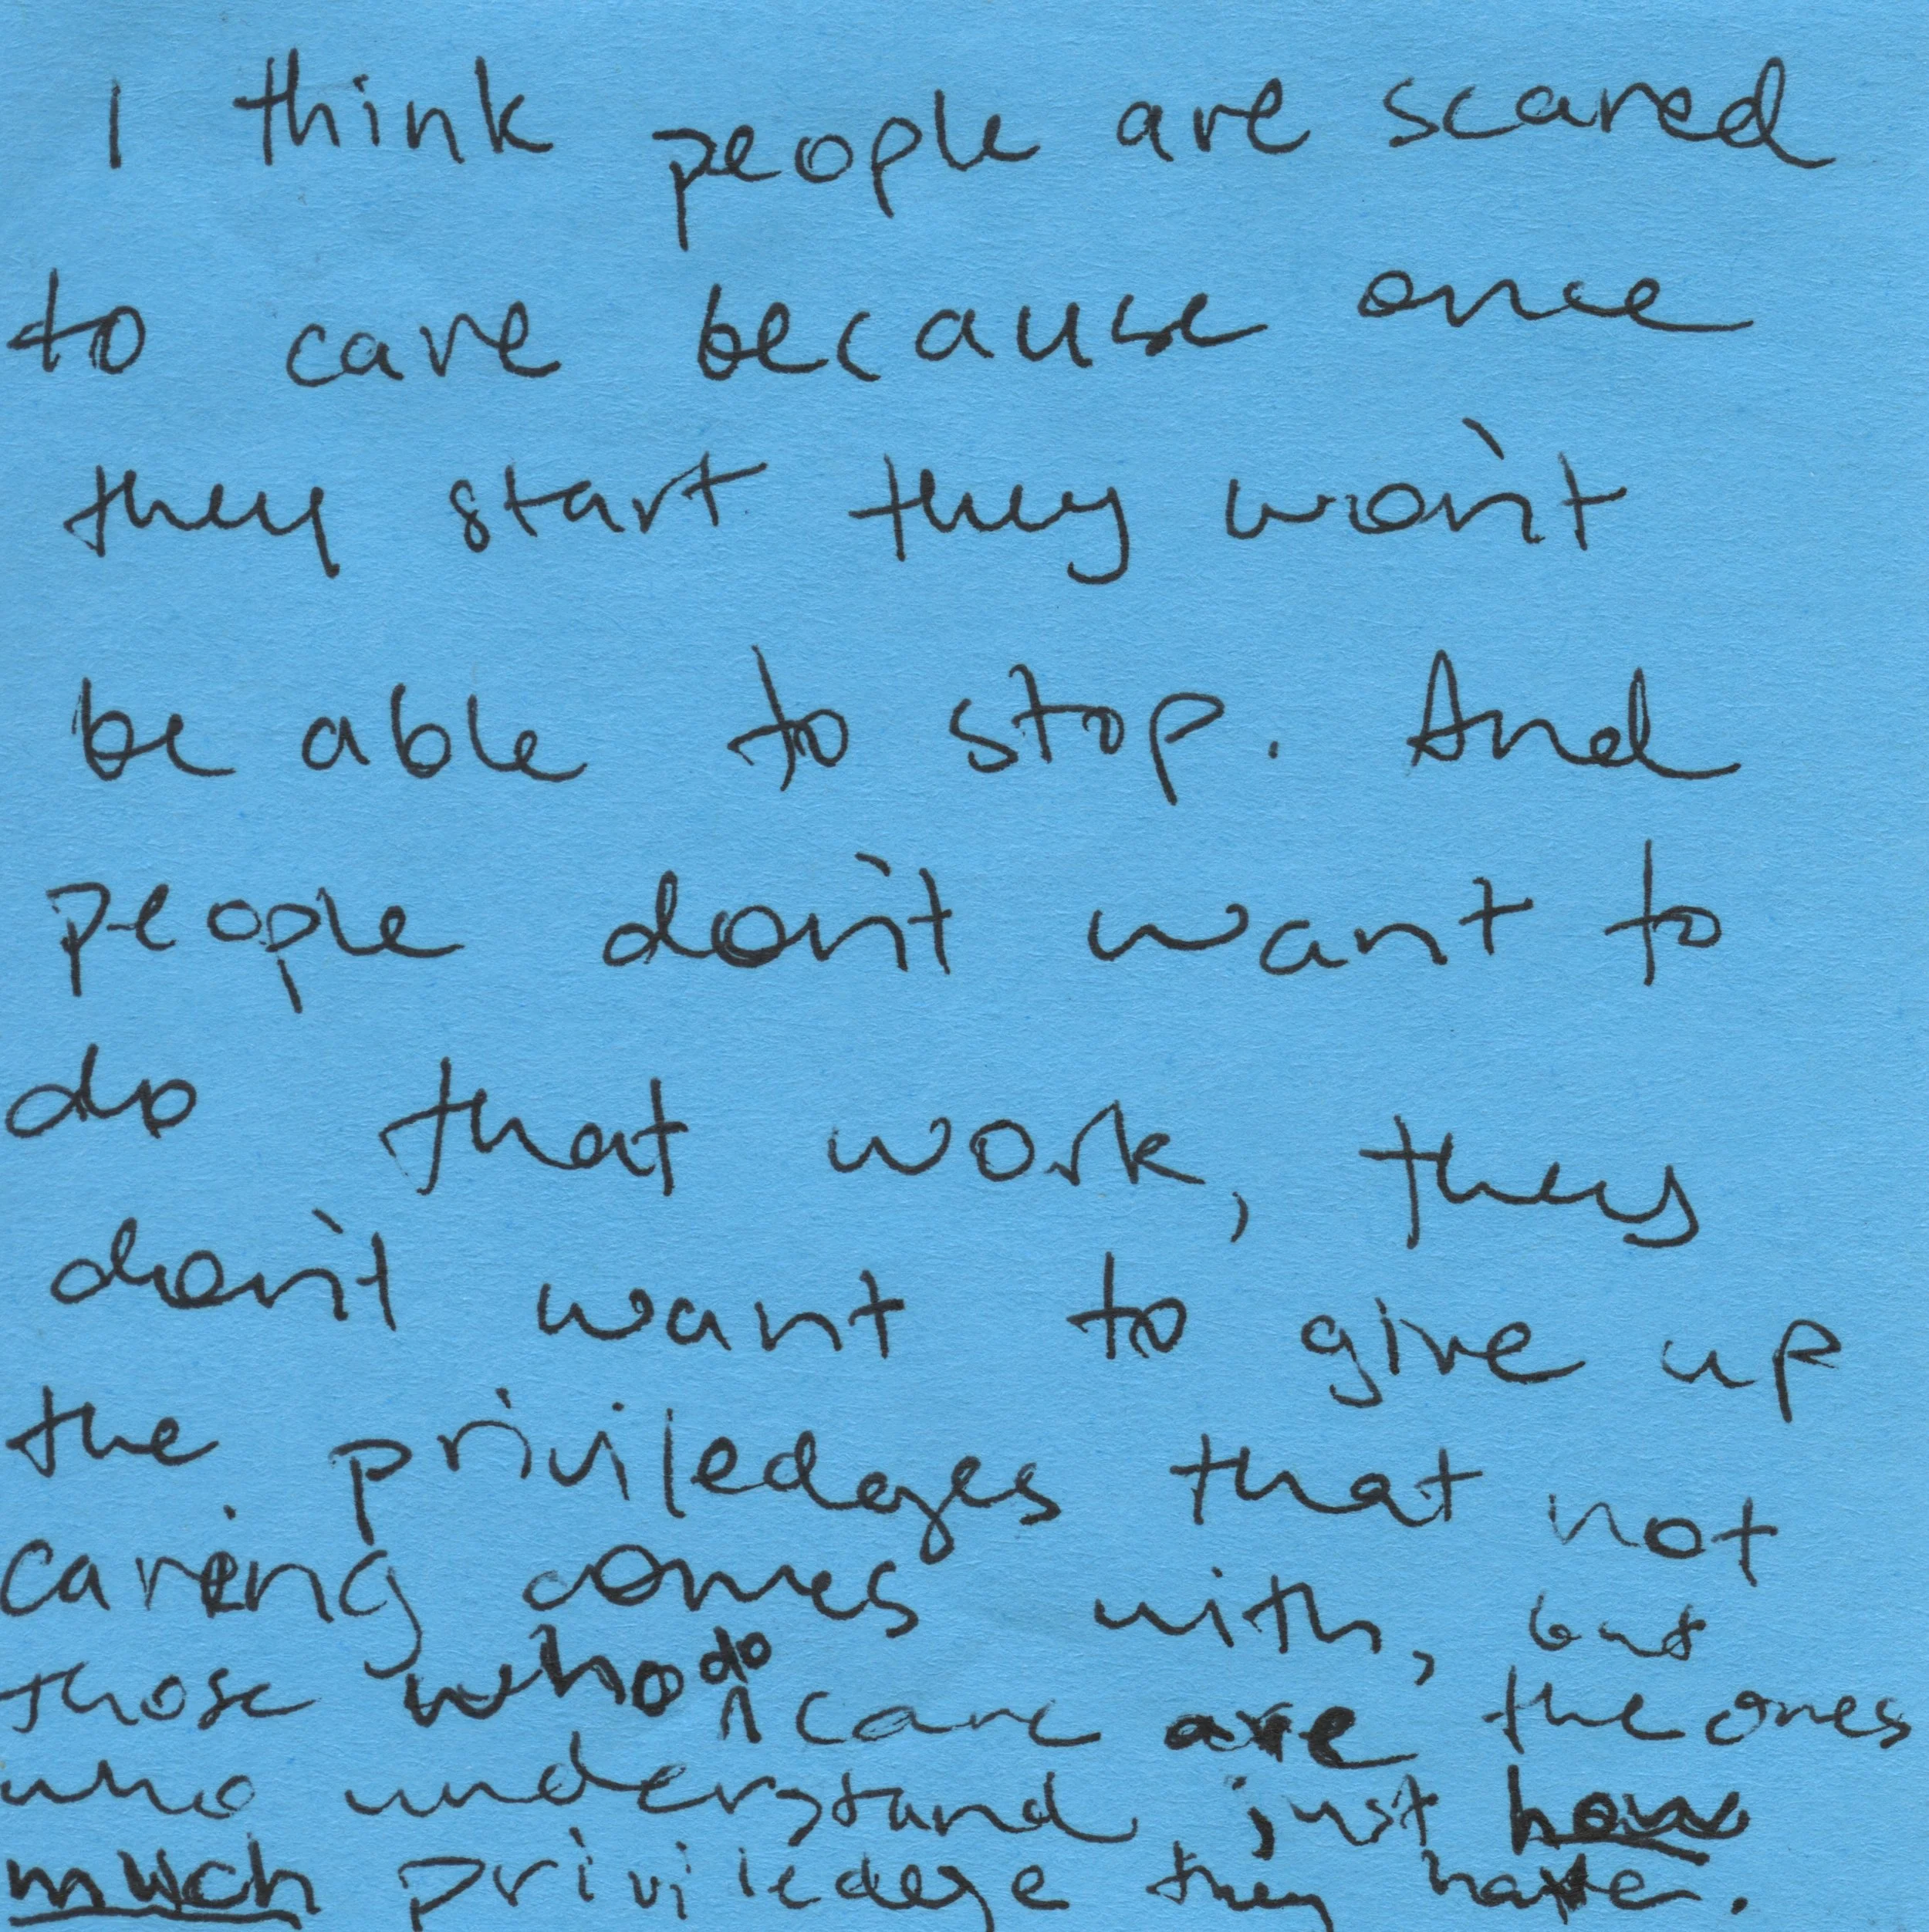 I think people are scared
to care because once
they start they won't
be able to stop. And
people don't want to
do that work, they
don't want to give up
the priviledges that not
caring comes with, but
those who do care are the ones
who understand just how
much priviledge they have.